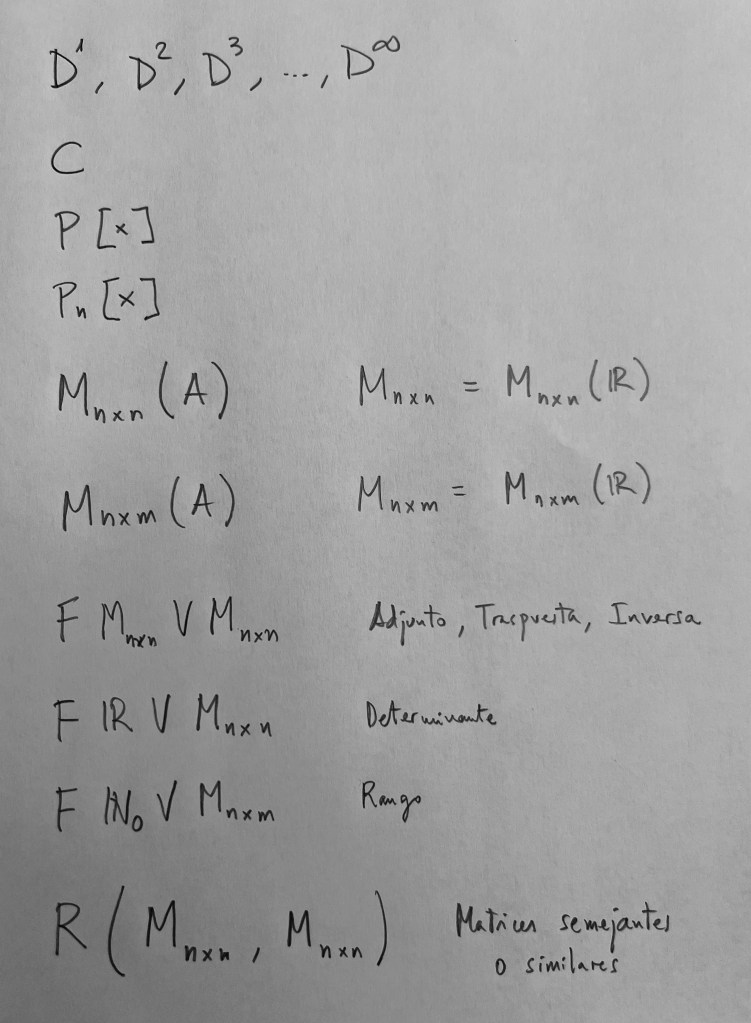 D¹, D², D³, ..., D^∞
C
P [x]
Pₙ [x]
Mₙₓₙ (A) Mₙₓₙ = Mₙₓₙ (ℝ)
Mₙₓₘ (A) Mₙₓₘ = Mₙₓₘ (ℝ)
F Mₙₓₙ V Mₙₓₙ Adjunto, Traspuesta, Inversa
F ℝ V Mₙₓₙ Determinante
F ℕ₀ V Mₙₓₘ Rango
R (Mₙₓₙ, Mₙₓₙ) Matrices semejantes
o similares